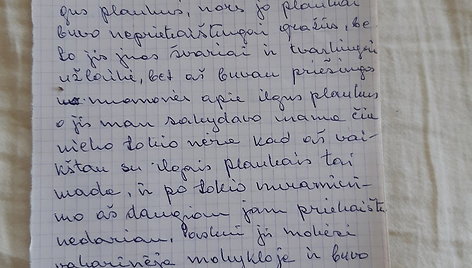 gus plaukus, nors jo plaukai
buvo nepriekaištingai gražūs, be
to jis juos švariai ir tvarkingai
užlaikė, bet aš buvau priešingos
nuomonės apie ilgus plaukus
o jis man sakydavo mama čia
nieko tokio nėra kad aš vai-
kštau su ilgais plaukais tai
mada, ir po tokio nuramini-
mo aš daugiau jam priekaištų
nedariau. Paskui jis mokėsi
vakarinėje mokykloje ir buvo